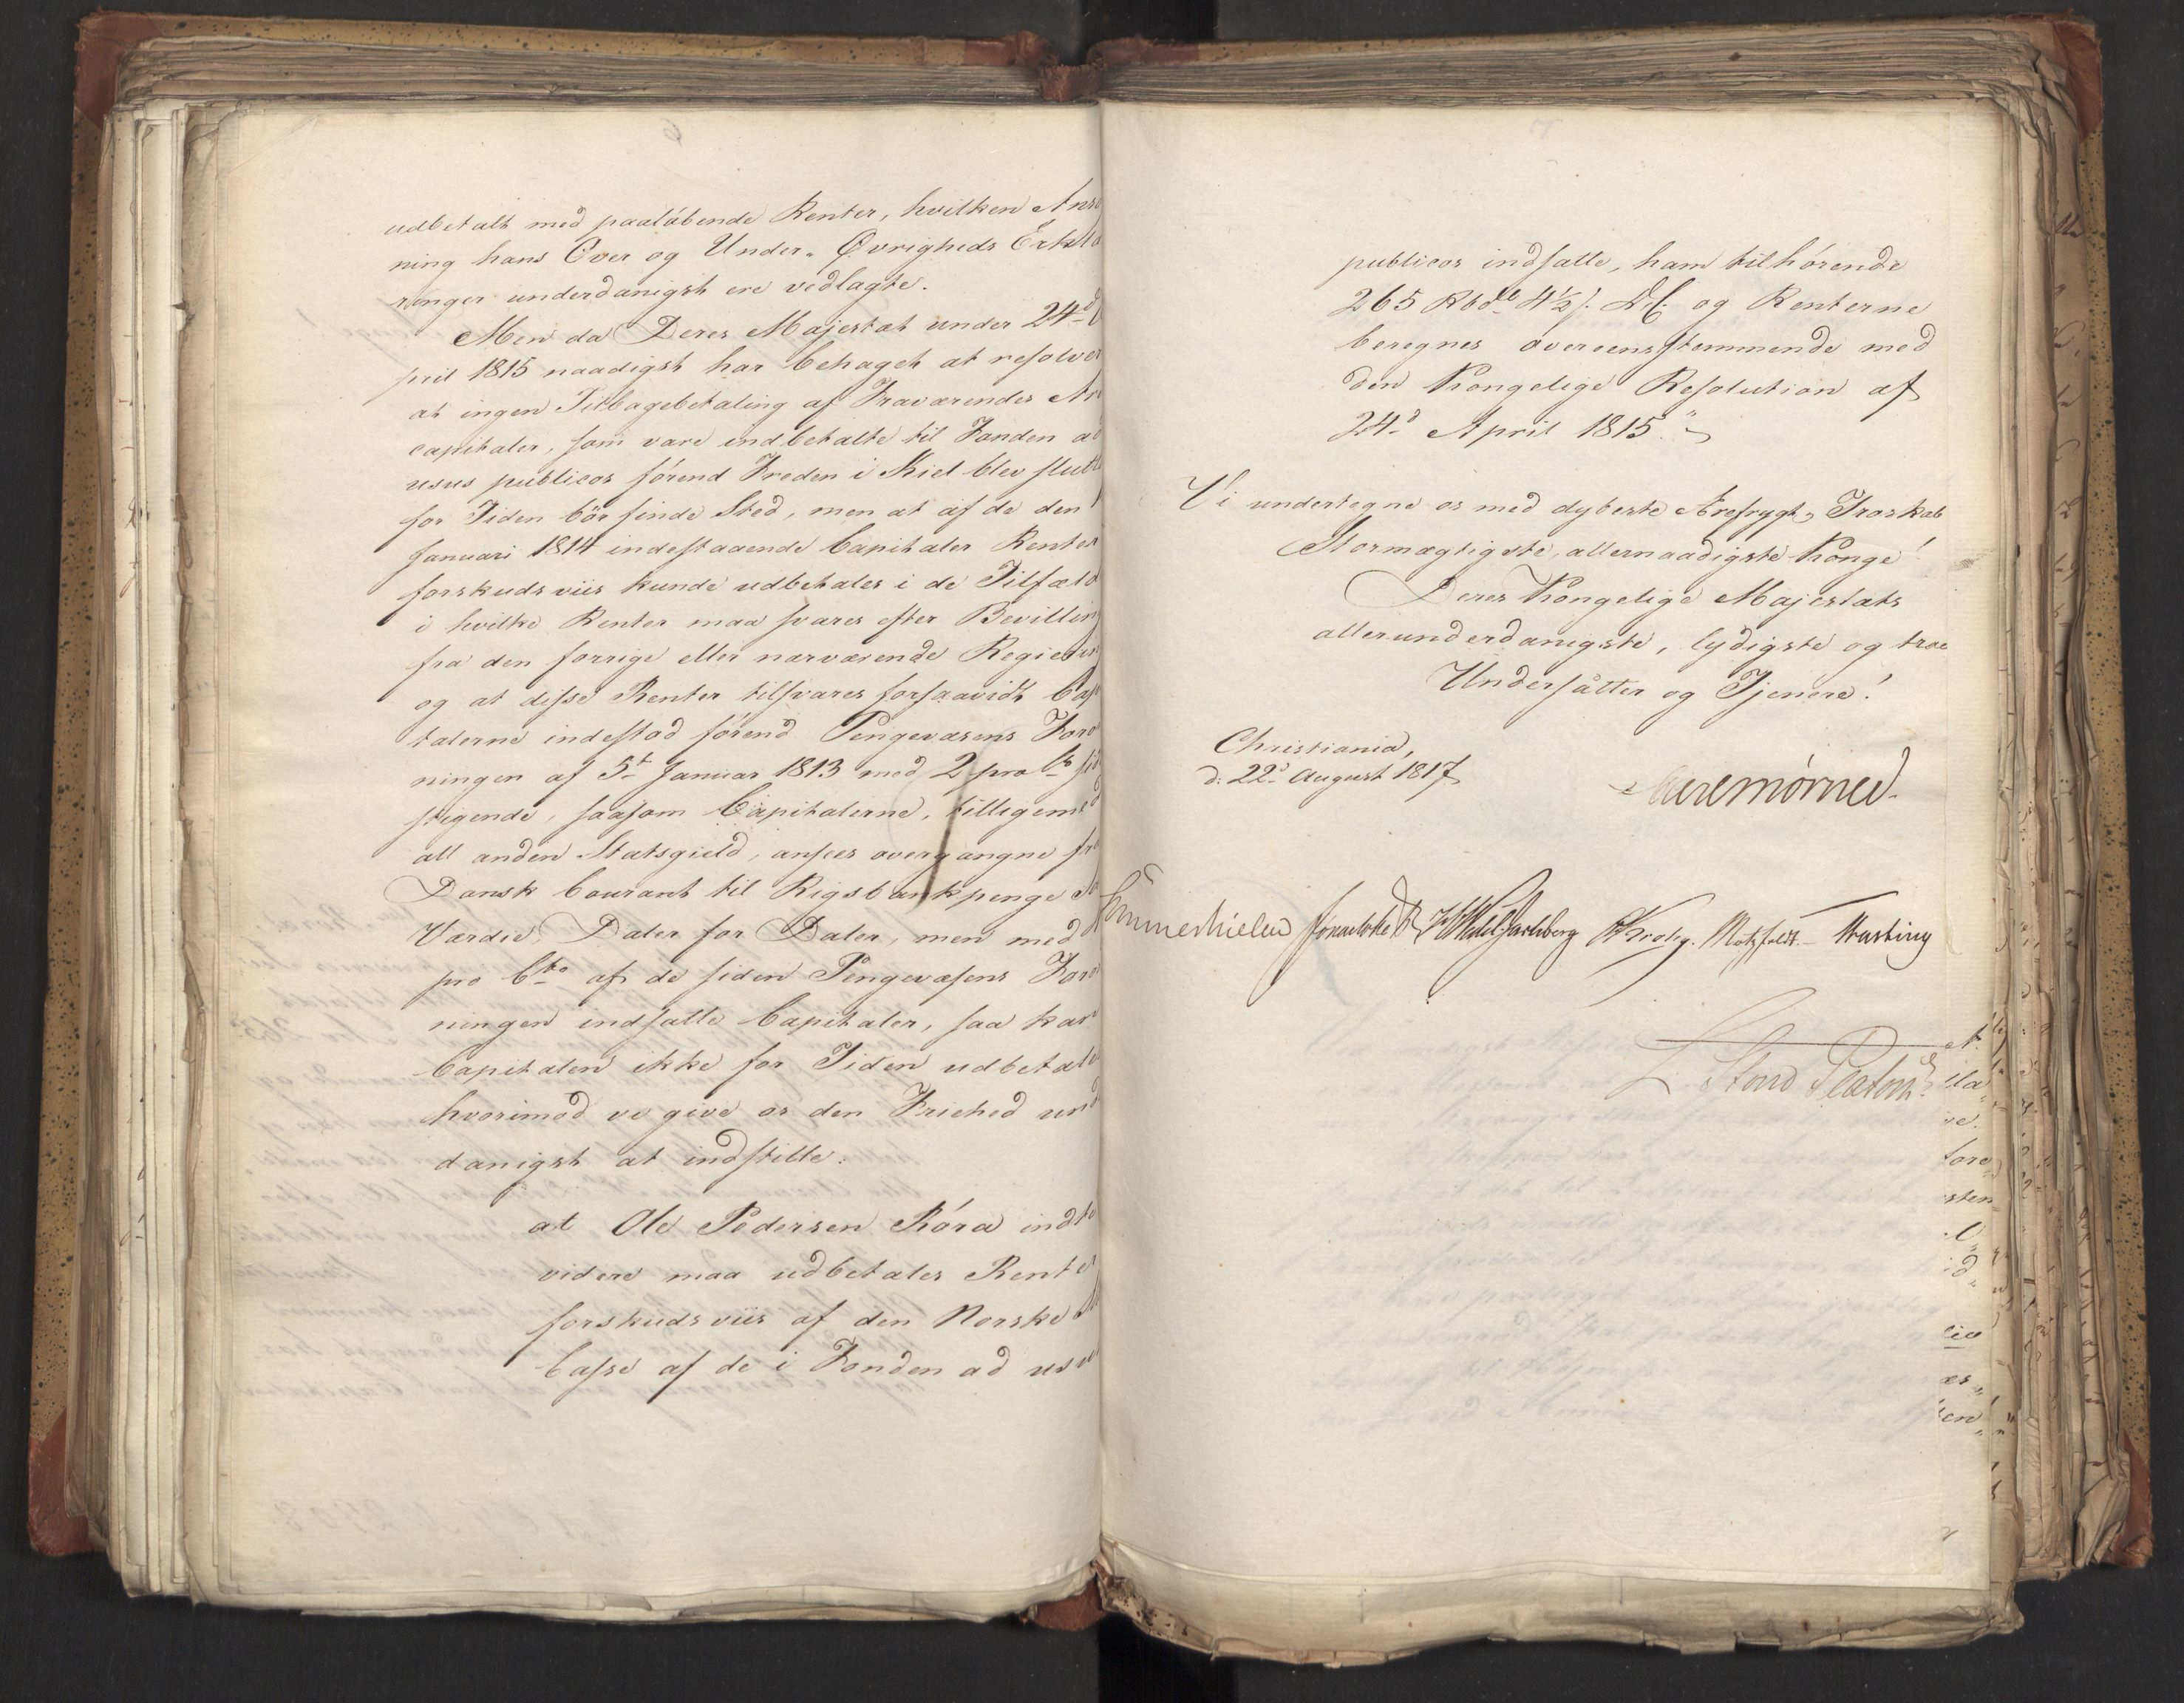 udbetalt med paaløbende Renter, hvilken Ansø
ning hans Over og Under-Øvrigheds Erklæ
ringer underdanigst ere vedlagte.
Men da Deres Majestæt under 24d A
pril 1815 naadigst har behaget at resolver
at ingen Tilbagebetaling af Fraværendes Ar
capitaler, som vare indbetalte til Fonden ad
usus publicos förend Freden i Kiel blev slutt
for Tiden bör finde Sted, men at af de den 1
Januari 1814 indestaaende Capitaler Renter
forskudsviis kunde udbetales i de Tilfæld
i hvilke Renter maa svares efter Bevilling
fra den forrige eller nærværende Regiering
og at disse Renter tilsvares forsaavidt Capi
talerne indestod förend Pengevæsens Foro
ningen af 5t Januar 1813 med 2 pro Ct
stigende, saasom Capitalerne, tilligemed
all anden Statsgield, ansees overgangne fra
Dansk Courant til Rigsbankpenge
Værdie, Daler for Daler, men med
pro Cto af de siden Pengevæsens Foro
ningen indsatte Capitaler, saa kan
Capitalen ikke for Tiden udbetale
hvorimod vi give os den Friehed und
danigst at indstille:
at Ole Pedersen Röra indt
videre maa udbetales Renter
forskudsviis af den Norske
Casse af de i Fonden ad usus
publicos indsatte, ham tilhörende
265 Rbdl 4½ s. D.C. og Renterne
beregnes overeensstemmende med
den Kongelige Resolution af
24d April 1815."
Vi undertegne os med dybeste Ærefrygt, Troskab
Stormægtigste, allernaadigste Konge!
Deres Kongelige Majestæts
allerunderdanigste, lydigste og troe
Undersåtter og Tjenere!
Christiania,
d: 22d August 1817
Mörner
Sommerhielm Jonas Collett HWedel Jarlsberg Krohg. Motzfeldt. Hasting
L. Stoud Platou